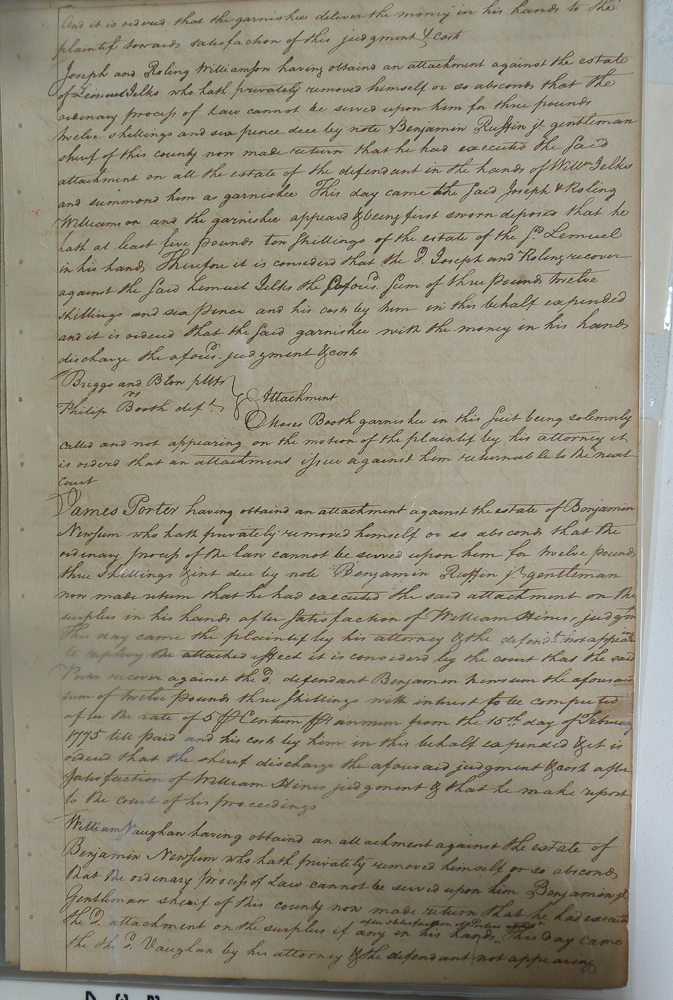 And it is ordered that the garnishee deliver the money in his hands to the
plaintif towards satisfaction of this judgment & cost
Joseph and Roling Williamson having obtaind an attachment against the estate
of Lemuel Jelks who hath privately removed himself or so absconds that the
ordinary process of Law cannot be served upon him for three pounds
twelve shillings and six pence due by note Benjamin Ruffin jr. gentleman
sherif of this county now made return that he had executed the said
attachment on all the estate of the defendant in the hands of Willm Jelks
and summond him as garnishee This day came the said Joseph & Roling
Williamson and the garnishee appeard & being first sworn deposed that he
hath at least five pounds ten shillings of the estate of the sd Lemuel
in his hands Therefore it is considerd that the sd. Joseph and Roling recover
against the said Lemuel Jelks the aforesd. sum of three pounds twelve
shillings and six pence and his costs by him in this behalf expended
and it is ordered that the said garnishee with the money in his hands
discharge the aforesd. judgment & costs
Briggs and Blow plts
vs
Philip Booth deft. } Attachment
Moses Booth garnishee in this suit being solemnly
called and not appearing on the motion of the plaintif by his attorney it
is ordered that an attachment issue against him returnable to the next
Court
James Porter having obtaind an attachment against the estate of Benjamin
Newsum who hath privately removed himself or so absconds that the
ordinary process of the law cannot be served upon him for twelve pounds
three shillings & int due by note Benjamin Ruffin jr. gentleman
now made return that he had executed the said attachment on the
surplus in his hands after satisfaction of William Hines, judgm
This day came the plaintif by his attorney & the defendt. not appear
to replevy the attached effect it is considerd by the court that the said
Porter recover against the sd. defendant Benjamin Newsum the aforesaid
sum of twelve pounds three shillings with interest to be computed
after the rate of 5 P Centum P annum from the 15th day of February
1775 till paid and his costs by him in this behalf expended & it is
ordered that the sherif discharge the aforesaid judgment & costs after
satisfaction of William Hines judgment & that he make report
to the court of his proceedings
William Vaughan having obtaind an attachment against the estate of
Benjamin Newsum who hath privately removed himself or so absconds
that the ordinary process of Law cannot be served upon him Benjamin jr.
Gentleman sherif of this county now made return that he had executed
the sd. attachment on the surplus if any in his hands after satisfaction of This day came
the the sd. Vaughan by his attorney & the defendant not appearing